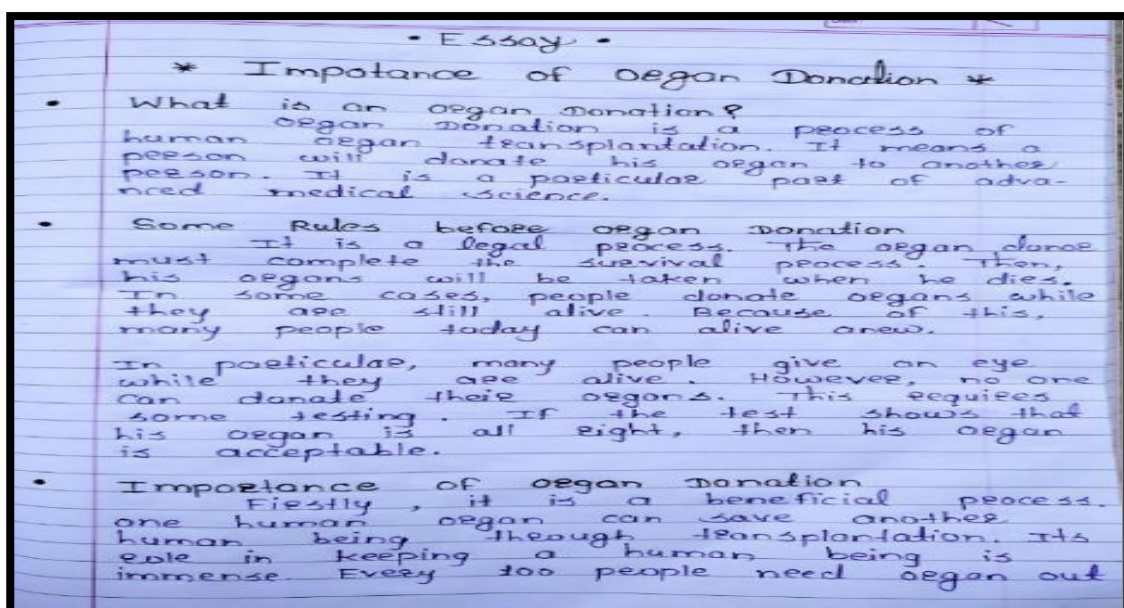 • Essay •
* Impotance of organ Donation *
• What is an organ Donation?
organ Donation is a process of
human organ transplantation. It means a
person will donate his organ to another
person. It is a particular part of adva-
nced medical science.
• Some Rules before organ Donation
It is a legal process. The organ donor
must complete the survival process. Then,
his organs will be taken when he dies.
In some cases, people donate organs while
they are still alive. Because of this,
many people today can alive anew.
In particular, many people give an eye
while they are alive. However, no one
can donate their organs. This requires
some testing. If the test shows that
his organ is all right, then his organ
is acceptable.
• Importance of organ Donation
Firstly, it is a beneficial process.
one human organ can save another
human being through transplantation. Its
role in keeping a human being is
immense. Every 100 people need organ out